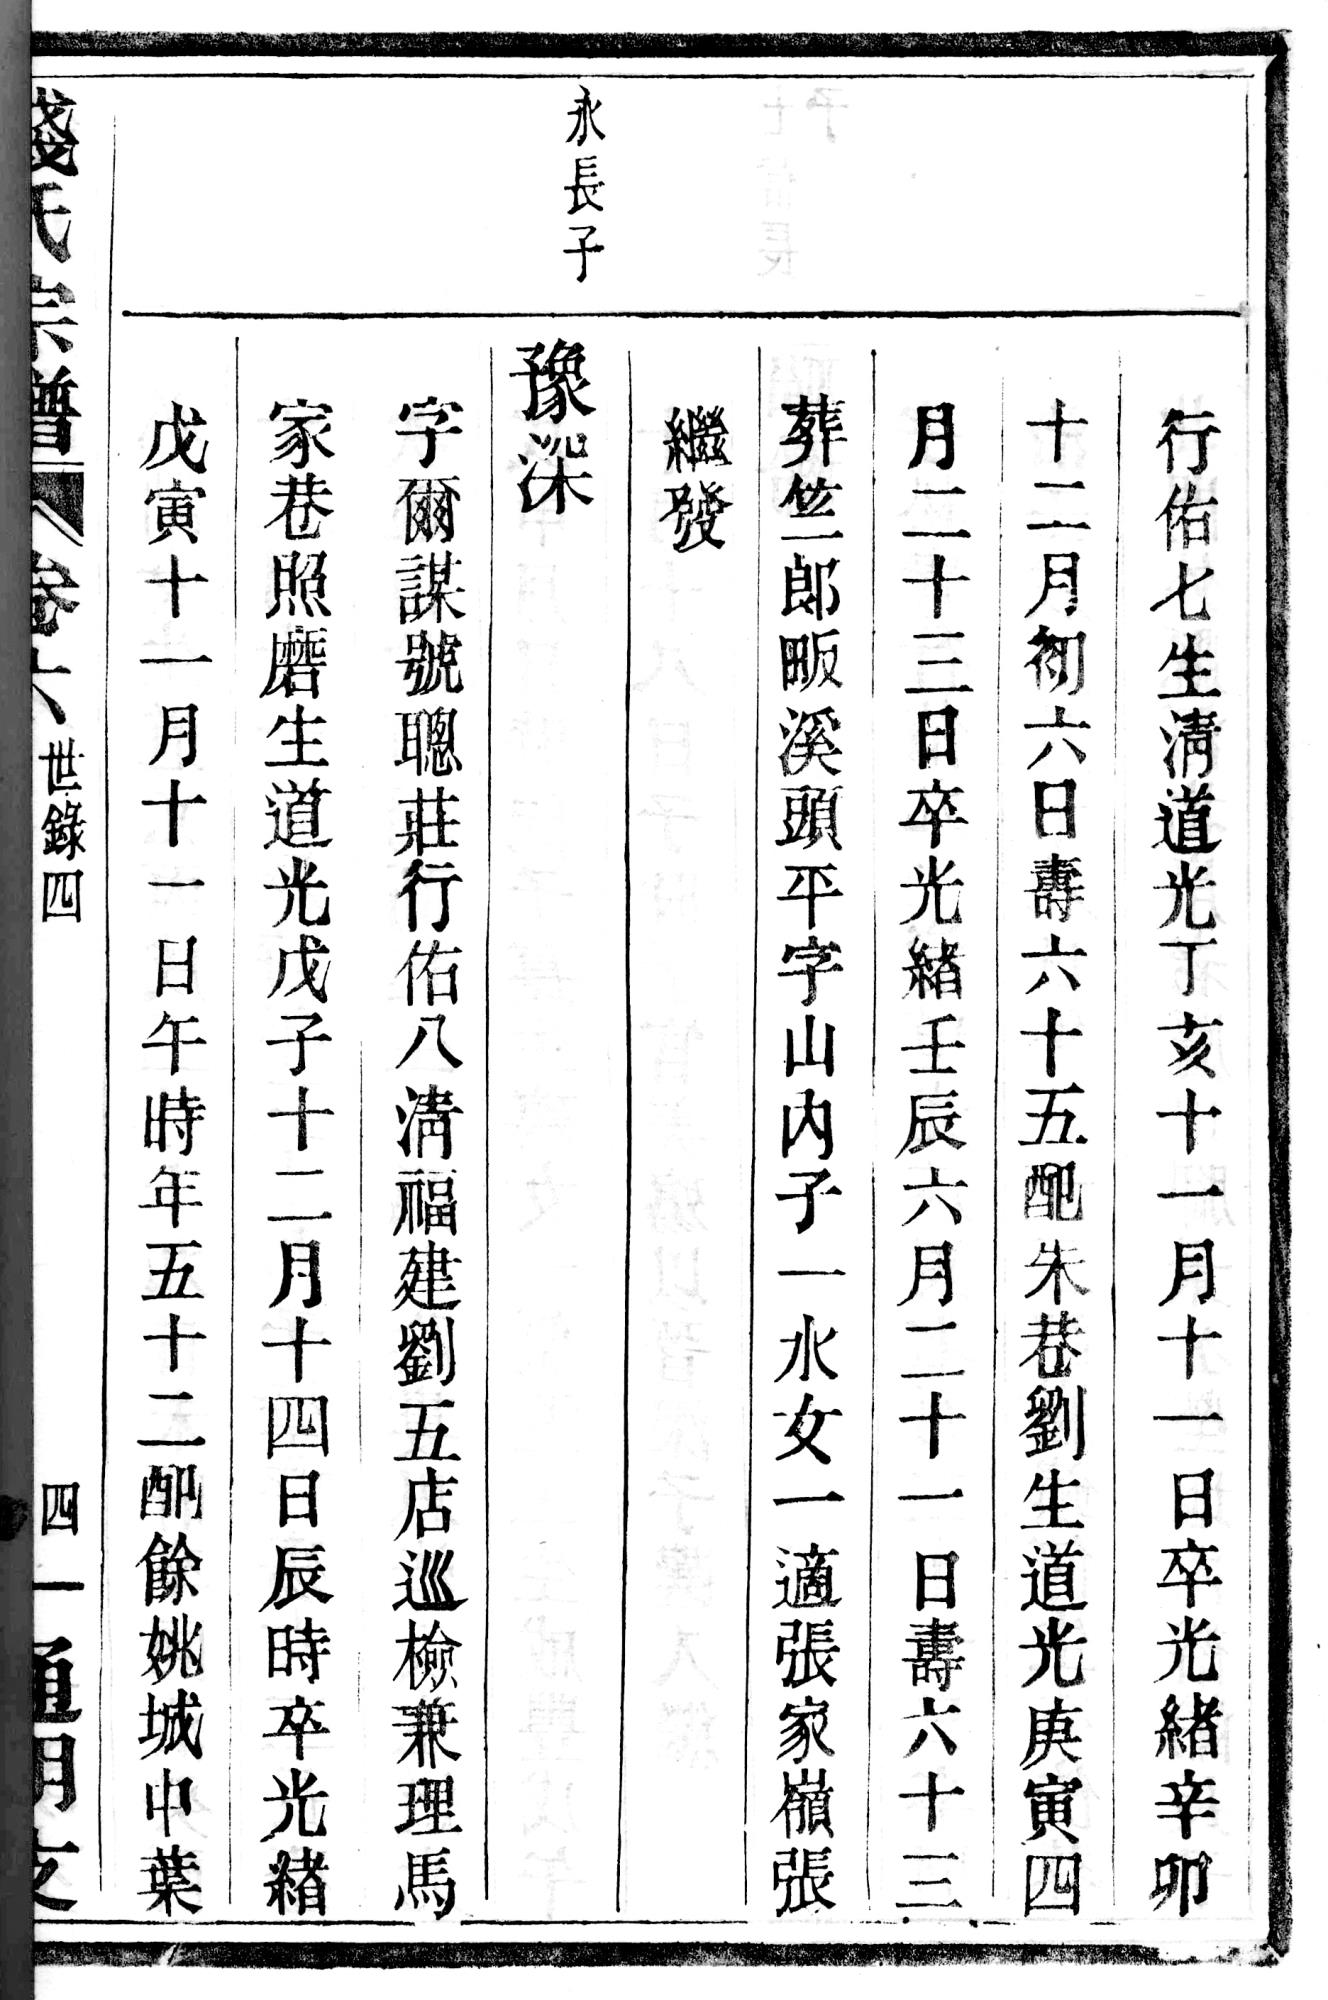 行佑七生淸道光丁亥十一月十一日卒光緖辛卯
十二月初六日壽六十五配朱巷劉生道光庚寅四
月二十三日卒光緖壬辰六月二十一日壽六十三
葬竺郎畈溪頭平字山内子一水女一適張家嶺張
繼發
永長子
豫深
字爾謀號聰莊行佑八淸福建劉五店巡檢兼理馬
家巷照磨生道光戊子十二月十四日辰時卒光緖
戊寅十一月十一日午時年五十二配餘姚城中葉
錢氏宗譜 卷六 世錄四 四一 通明支